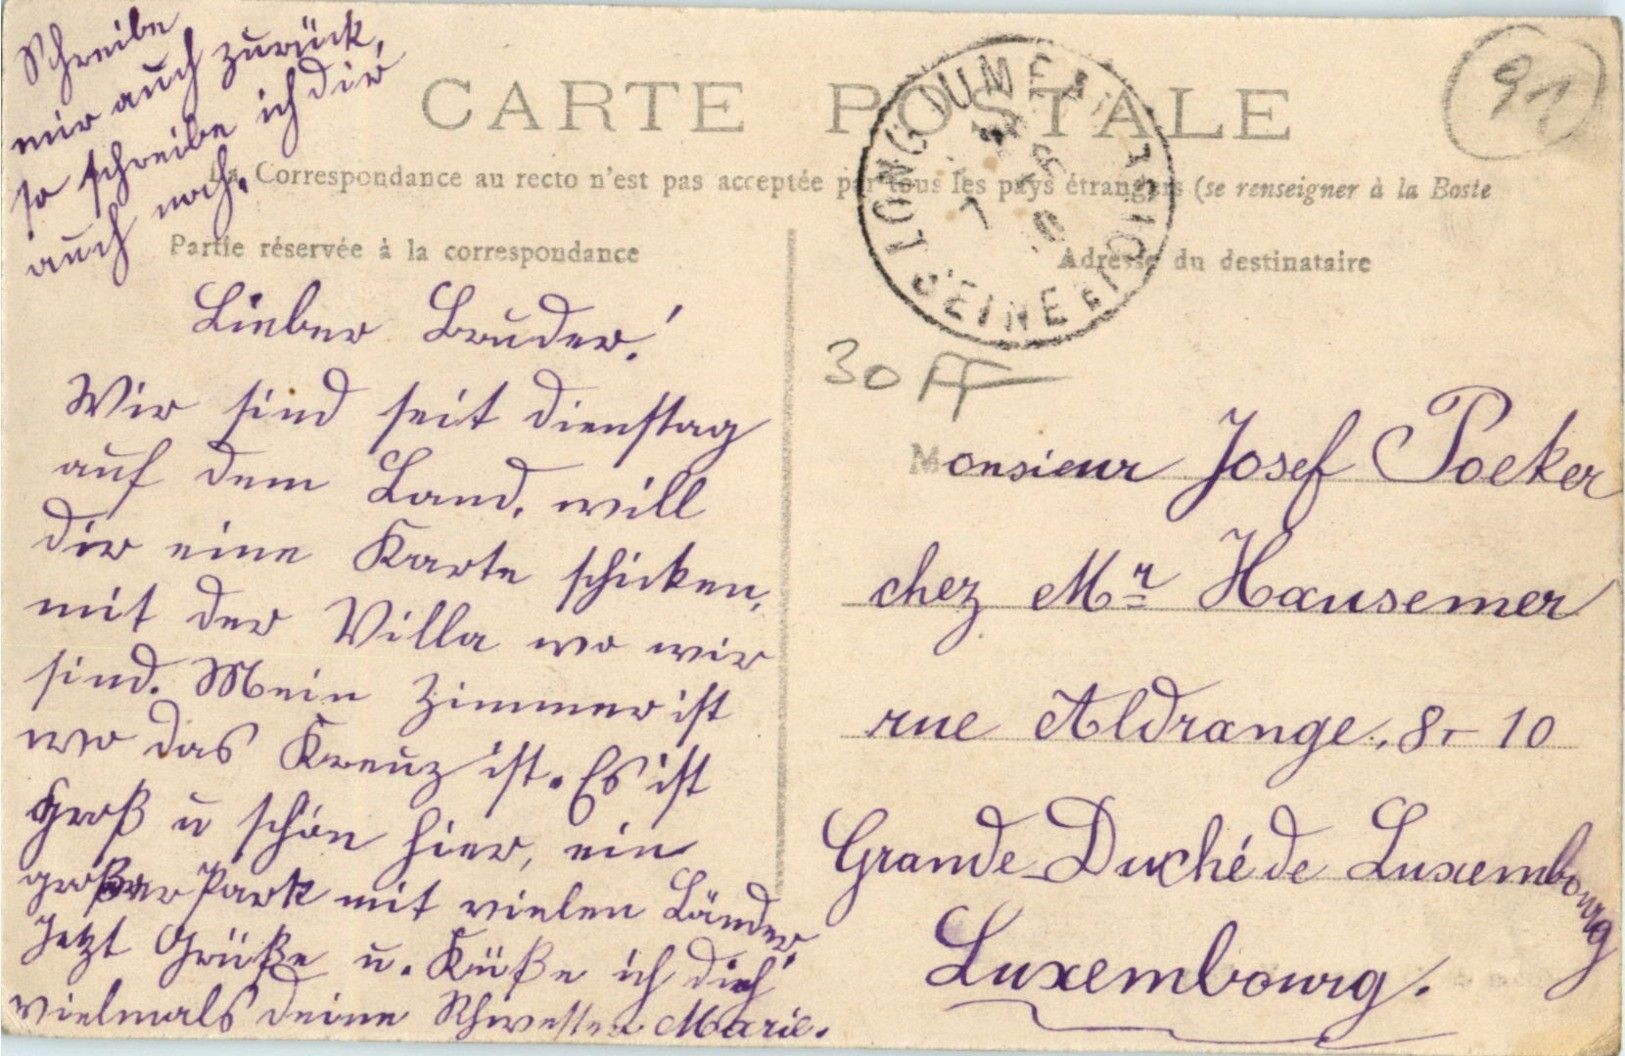 Schreibe
mir auch zurück,
so schreibe ich dir
auch noch.
CARTE POSTALE
La Correspondance au recto n'est pas acceptée par tous les pays étrangers (se renseigner à la Boste
Partie réservée à la correspondance
Adresse du destinataire
LONGJUMEAU
SEINE ET OISE
91
30 FF
Lieber Bruder!
Wir sind seit dienstag
auf dem Land, will
dir eine Karte schicken,
mit der Villa wo wir
sind. Mein Zimmer ist
wo das Kreuz ist. Es ist
Groß u schön hier, ein
großer Park mit vielen Länder,
Jetzt Grüße u. Küße ich dich
vielmals deine Schwester Marie.
Monsieur Josef Poeker
chez Mr Hausemer
rue Aldrange, 8- 10
Grande Duché de Luxembourg
Luxembourg.